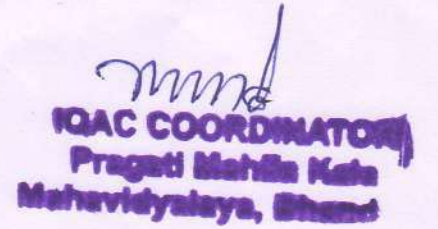 IQAC COORDINATOR
Pragati Mahila Kala
Mahavidyalaya,